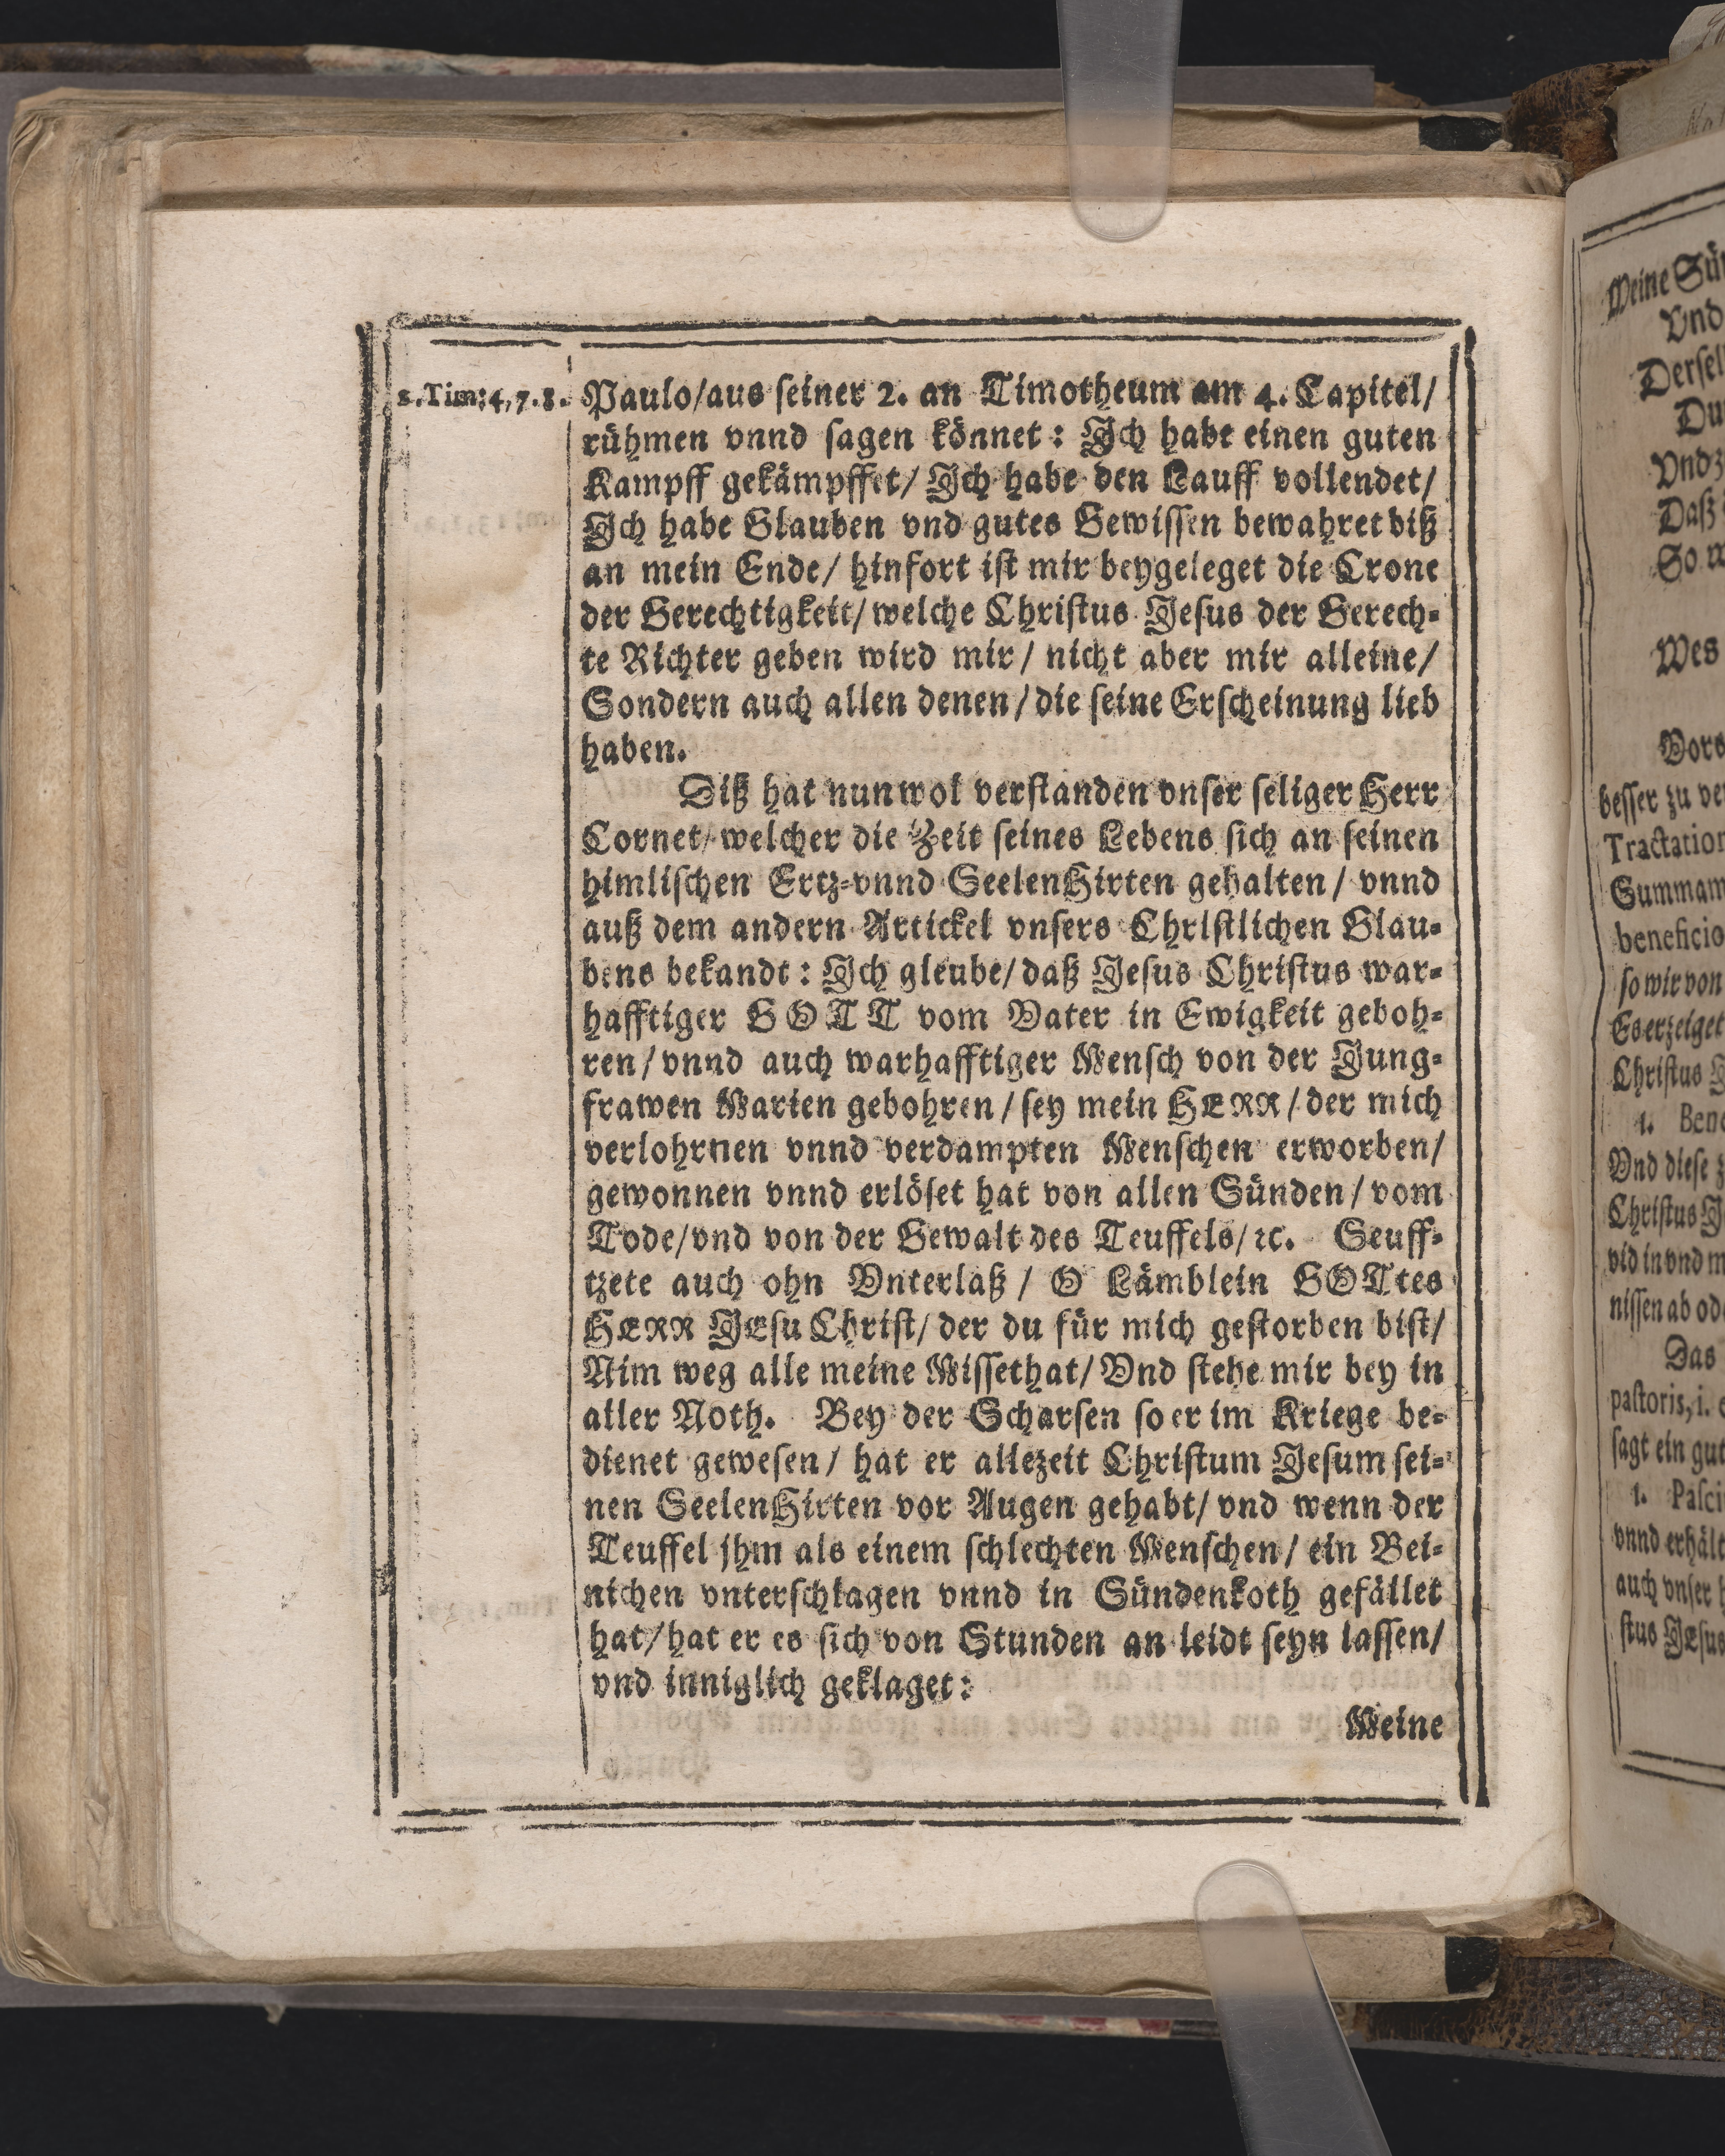 2. Tim: 4, 7. 8.
Paulo/aus seiner 2. an Timotheum am 4. Capitel/
rühmen vnnd sagen könnet: Ich habe einen guten
Kampff gekämpffet/ Ich habe den Lauff vollendet/
Ich habe Glauben vnd gutes Gewissen bewahret biß
an mein Ende/ hinfort ist mir beygeleget die Crone
der Gerechtigkeit/ welche Christus Jesus der Gerech-
te Richter geben wird mir/ nicht aber mir alleine/
Sondern auch allen denen/ die seine Erscheinung lieb
haben.
Diß hat nun wol verstanden vnser seliger Herr
Cornet/ welcher die Zeit seines Lebens sich an seinen
himlischen Ertz-vnnd SeelenHirten gehalten/ vnnd
auß dem andern Artickel vnsers Christlichen Glau-
bens bekandt: Ich gleube/ daß Jesus Christus war-
hafftiger GOTT vom Vater in Ewigkeit geboh-
ren/ vnnd auch warhafftiger Mensch von der Jung-
frawen Marien gebohren/ sey mein HERR/ der mich
verlohrnen vnnd verdampten Menschen erworben/
gewonnen vnnd erlöset hat von allen Sünden/ vom
Tode/ vnd von der Gewalt des Teuffels/ ꝛc. Seuff-
tzete auch ohn Vnterlaß/ O Lämblein GOTtes
HERR JEsu Christ/ der du für mich gestorben bist/
Nim weg alle meine Missethat/ Vnd stehe mir bey in
aller Noth. Bey der Scharsen so er im Kriege be-
dienet gewesen/ hat er allezeit Christum Jesum sei-
nen SeelenHirten vor Augen gehabt/ vnd wenn der
Teuffel jhm als einem schlechten Menschen/ ein Bei-
nichen vnterschlagen vnnd in Sündenkoth gefället
hat/ hat er es sich von Stunden an leidt seyn lassen/
vnd inniglich geklaget:
Meine
Meine
Vnd
Du
Daß
So
Wes
besser zu
Summam
beneficio
so wir von
Es erzeiget
Christus
1.
Vnd diese
Christus
Das
pastoris, i.
sagt ein gut
1.
vnnd erhält
auch vnser